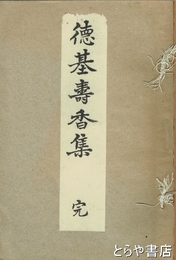 德基壽香集
完
とらや書店